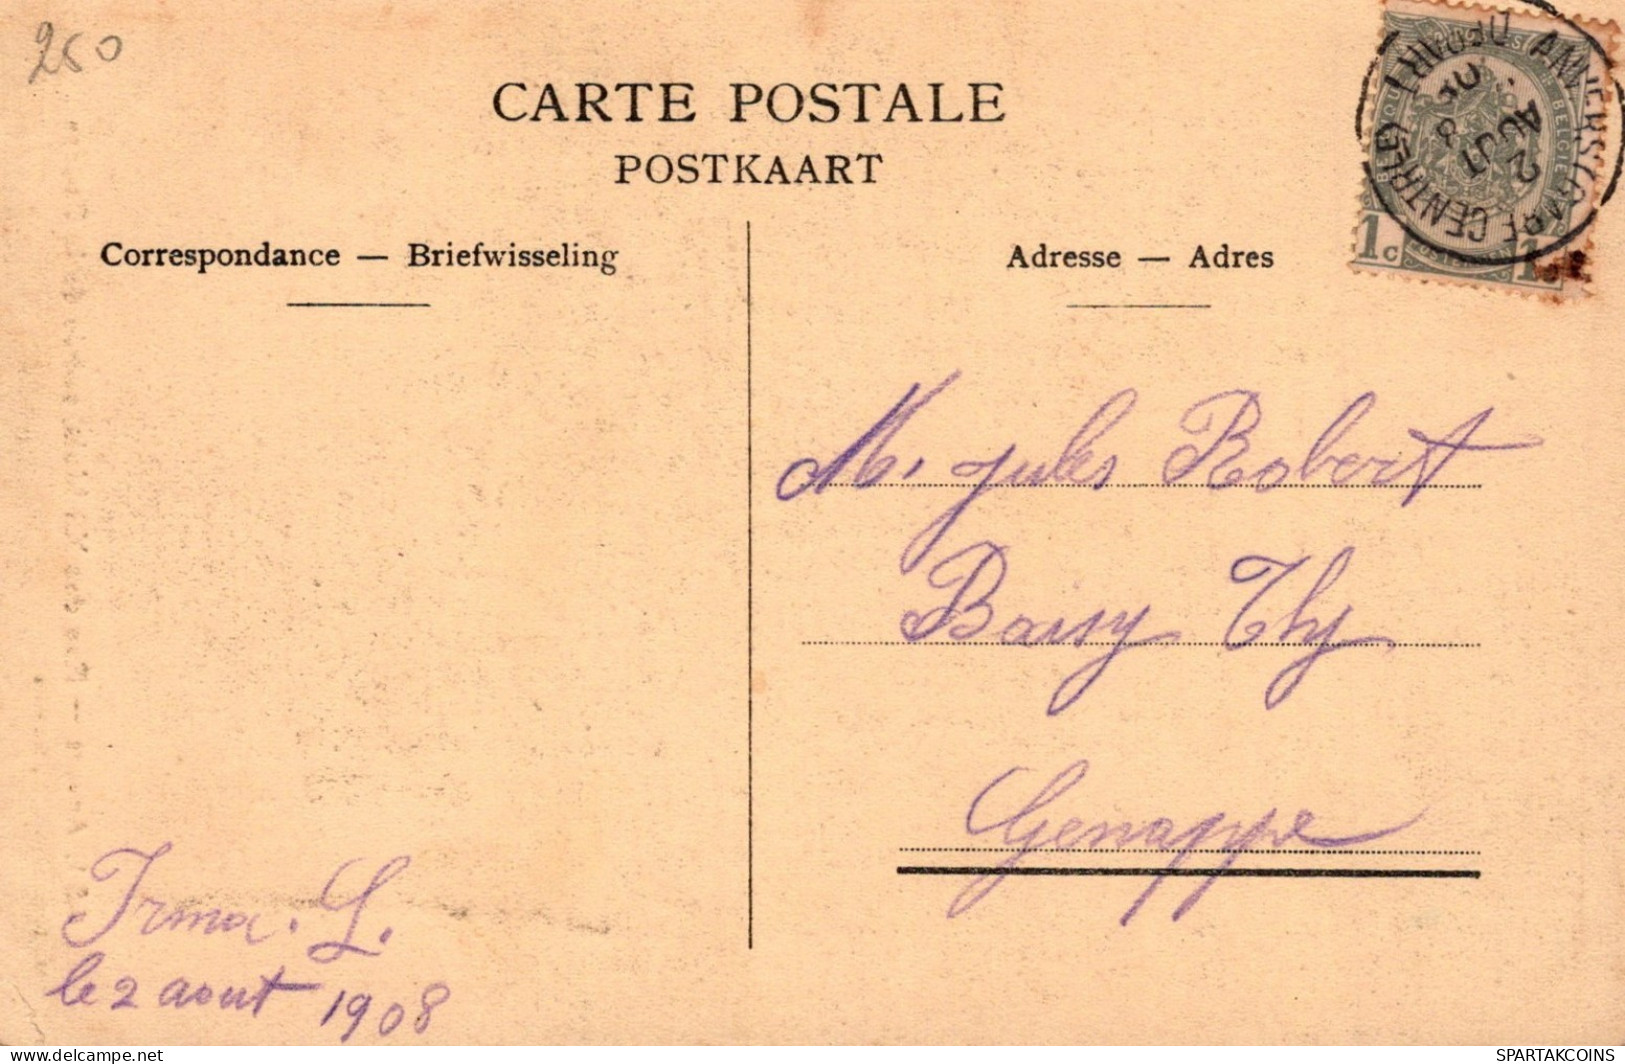 250
CARTE POSTALE
POSTKAART
Correspondance — Briefwisseling
Adresse — Adres
1c 1c
ANVERS (GARE CENTRALE) DEPART
2 AOUT 8
08
BELGIE
M. Jules Robert
Baisy Thy
Genappe
Irma. L.
le 2 aout 1908
https://www.delcampe.net
SPARTAKCOINS